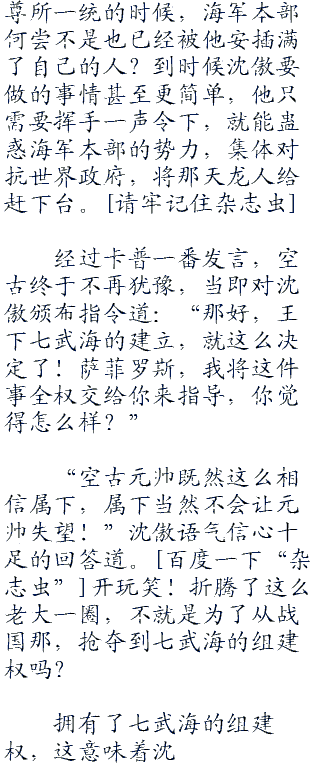 尊所一统的时候，海军本部
何尝不是也已经被他安插满
了自己的人？到时候沈傲要
做的事情甚至更简单，他只
需要挥手一声令下，就能蛊
惑海军本部的势力，集体对
抗世界政府，将那天龙人给
赶下台。[请牢记住杂志虫]
经过卡普一番发言，空
古终于不再犹豫，当即对沈
傲颁布指令道：“那好，王
下七武海的建立，就这么决
定了！萨菲罗斯，我将这件
事全权交给你来指导，你觉
得怎么样？”
“空古元帅既然这么相
信属下，属下当然不会让元
帅失望！”沈傲语气信心十
足的回答道。[百度一下“杂
志虫”]开玩笑！折腾了这么
老大一圈，不就是为了从战
国那，抢夺到七武海的组建
权吗？
拥有了七武海的组建
权，这意味着沈